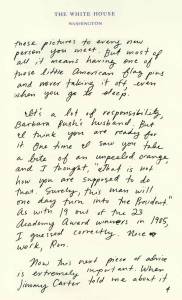 THE WHITE HOUSE
WASHINGTON
those pictures to every new
person you meet. But most of
all it means having one of
those little American flag pins
and never taking it off, even
when you go to sleep.
It's a lot of responsibility,
Barbara Bush's husband. But
I think you are ready for
it. One time I saw you take
a bite of an unpeeled orange,
and I thought "That is not
how you are supposed to do
that. Surely, this man will
one day turn into the President."
As with 19 out of the 23
Academy Award winners in 1985,
I guessed correctly. Nice
work, Ron.
Now this next piece of advice
is extremely important. When
Jimmy Carter told me about it